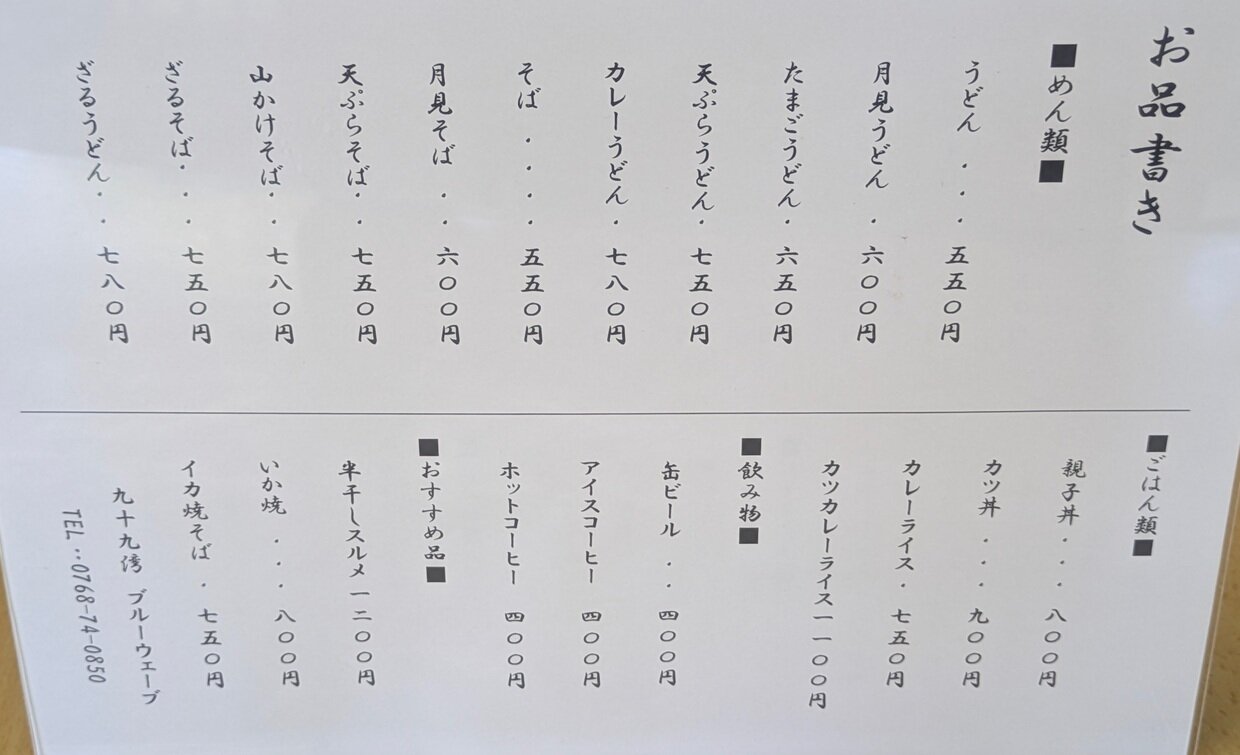 お品書き
■めん類■
うどん・・・五五〇円
月見うどん・六〇〇円
たまごうどん・六五〇円
天ぷらうどん・七五〇円
カレーうどん・七八〇円
そば・・・・五五〇円
月見そば・・六〇〇円
天ぷらそば・・七五〇円
山かけそば・・七八〇円
ざるそば・・・七五〇円
ざるうどん・・七八〇円
■ごはん類■
親子丼・・・八〇〇円
カツ丼・・・九〇〇円
カレーライス・七五〇円
カツカレーライス一一〇〇円
■飲み物■
缶ビール・・四〇〇円
アイスコーヒー 四〇〇円
ホットコーヒー 四〇〇円
■おすすめ品■
半干しスルメ一二〇〇円
いか焼・・・八〇〇円
イカ焼そば・七五〇円
九十九湾 ブルーウェーブ
TEL：0768-74-0850